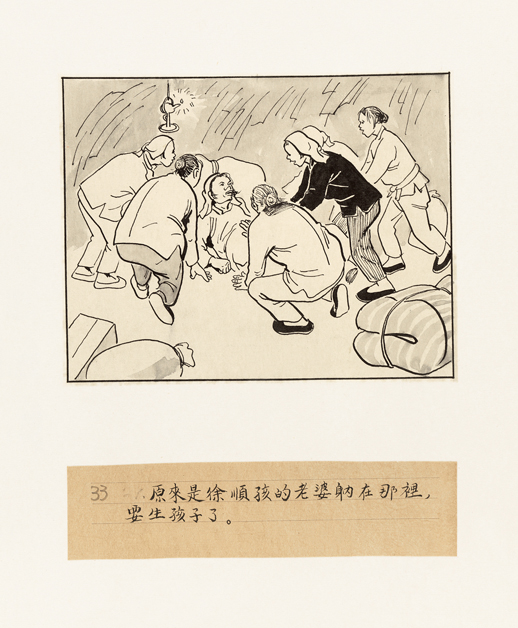 33 原來是徐順孩的老婆躺在那裡，
要生孩子了。